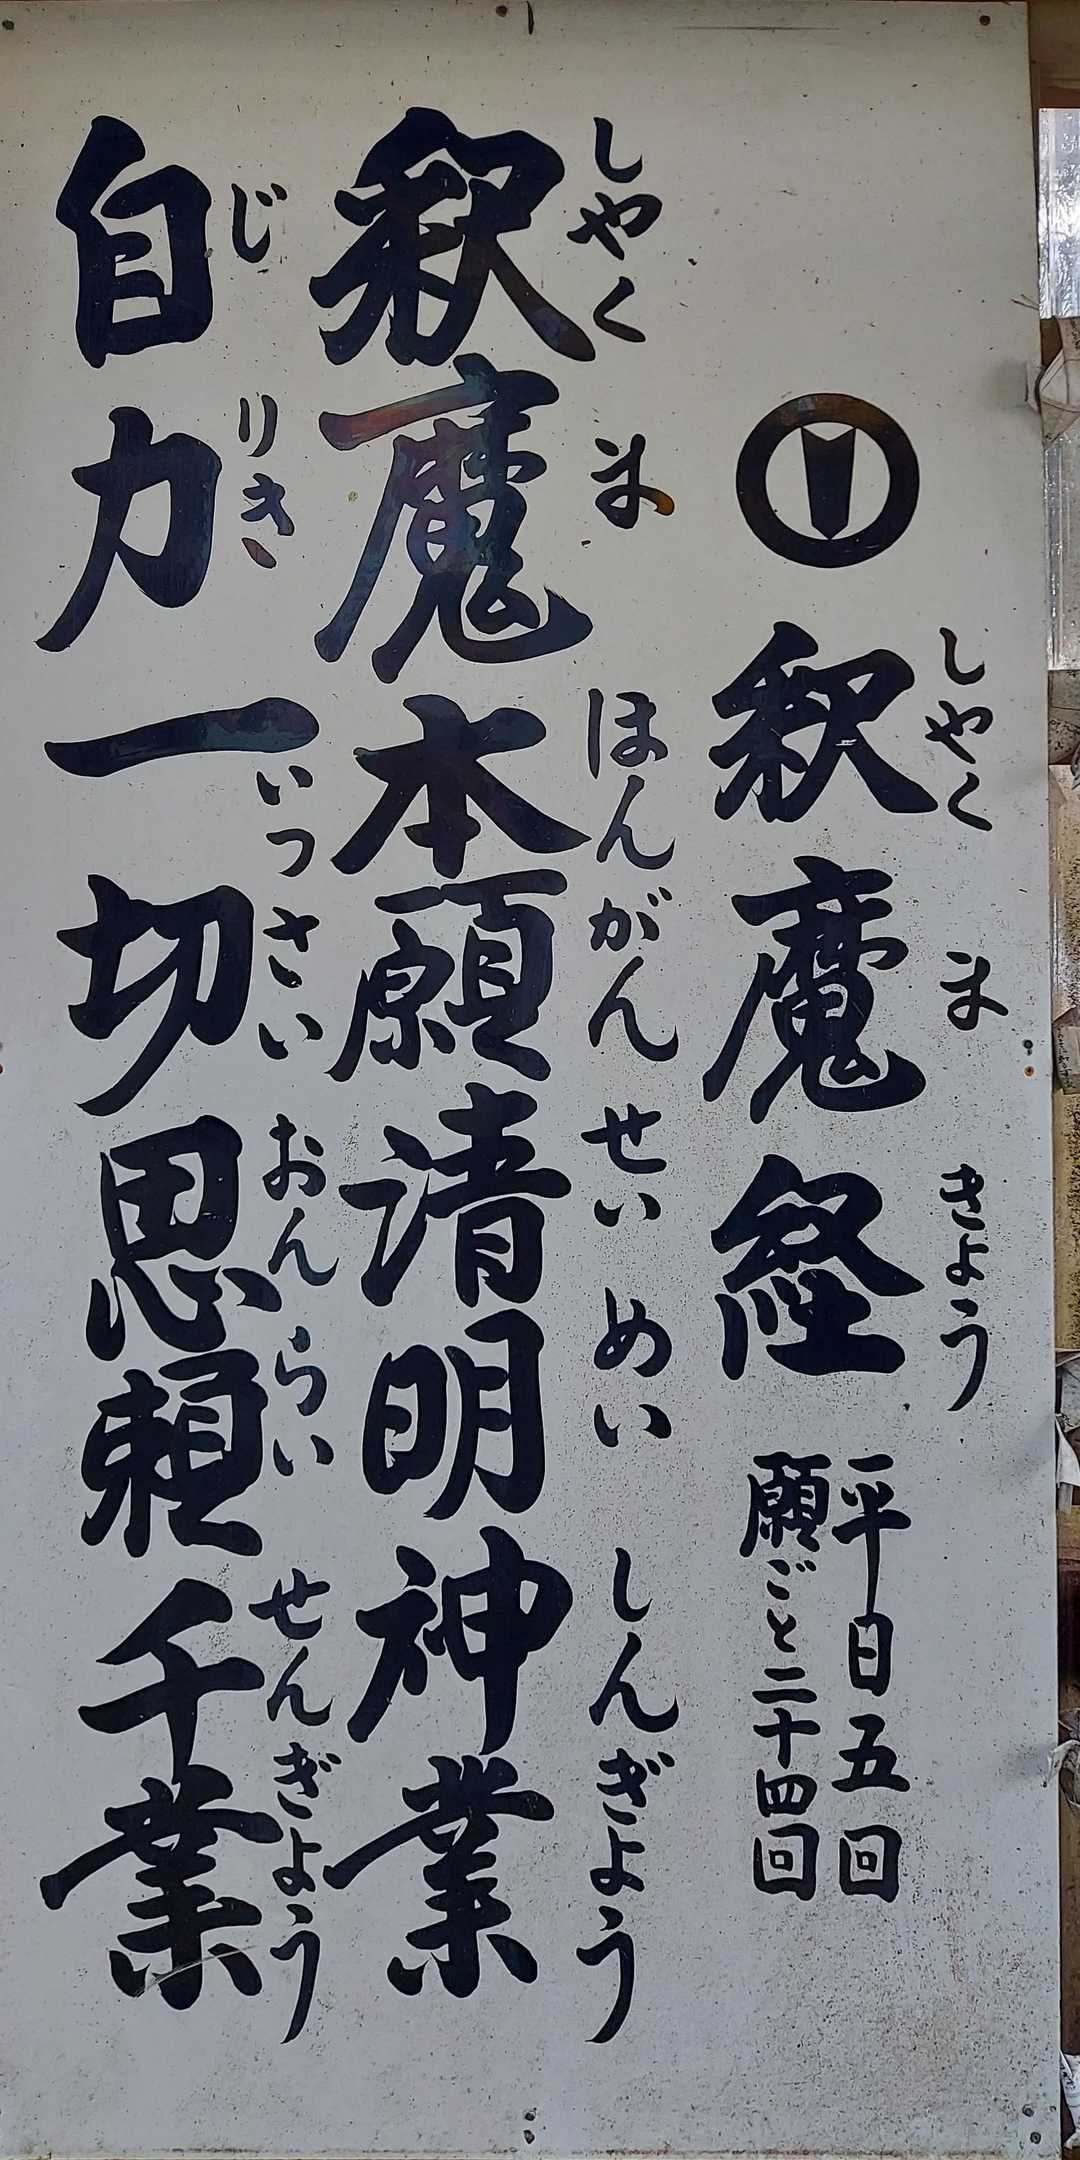 釈魔経
しやくまきょう
平日五回
願ごと二十四回
釈魔本願清明神業
しやくまほんがんせいめいしんぎょう
自力一切思頼千業
じりきいっさいおんらいせんぎょう